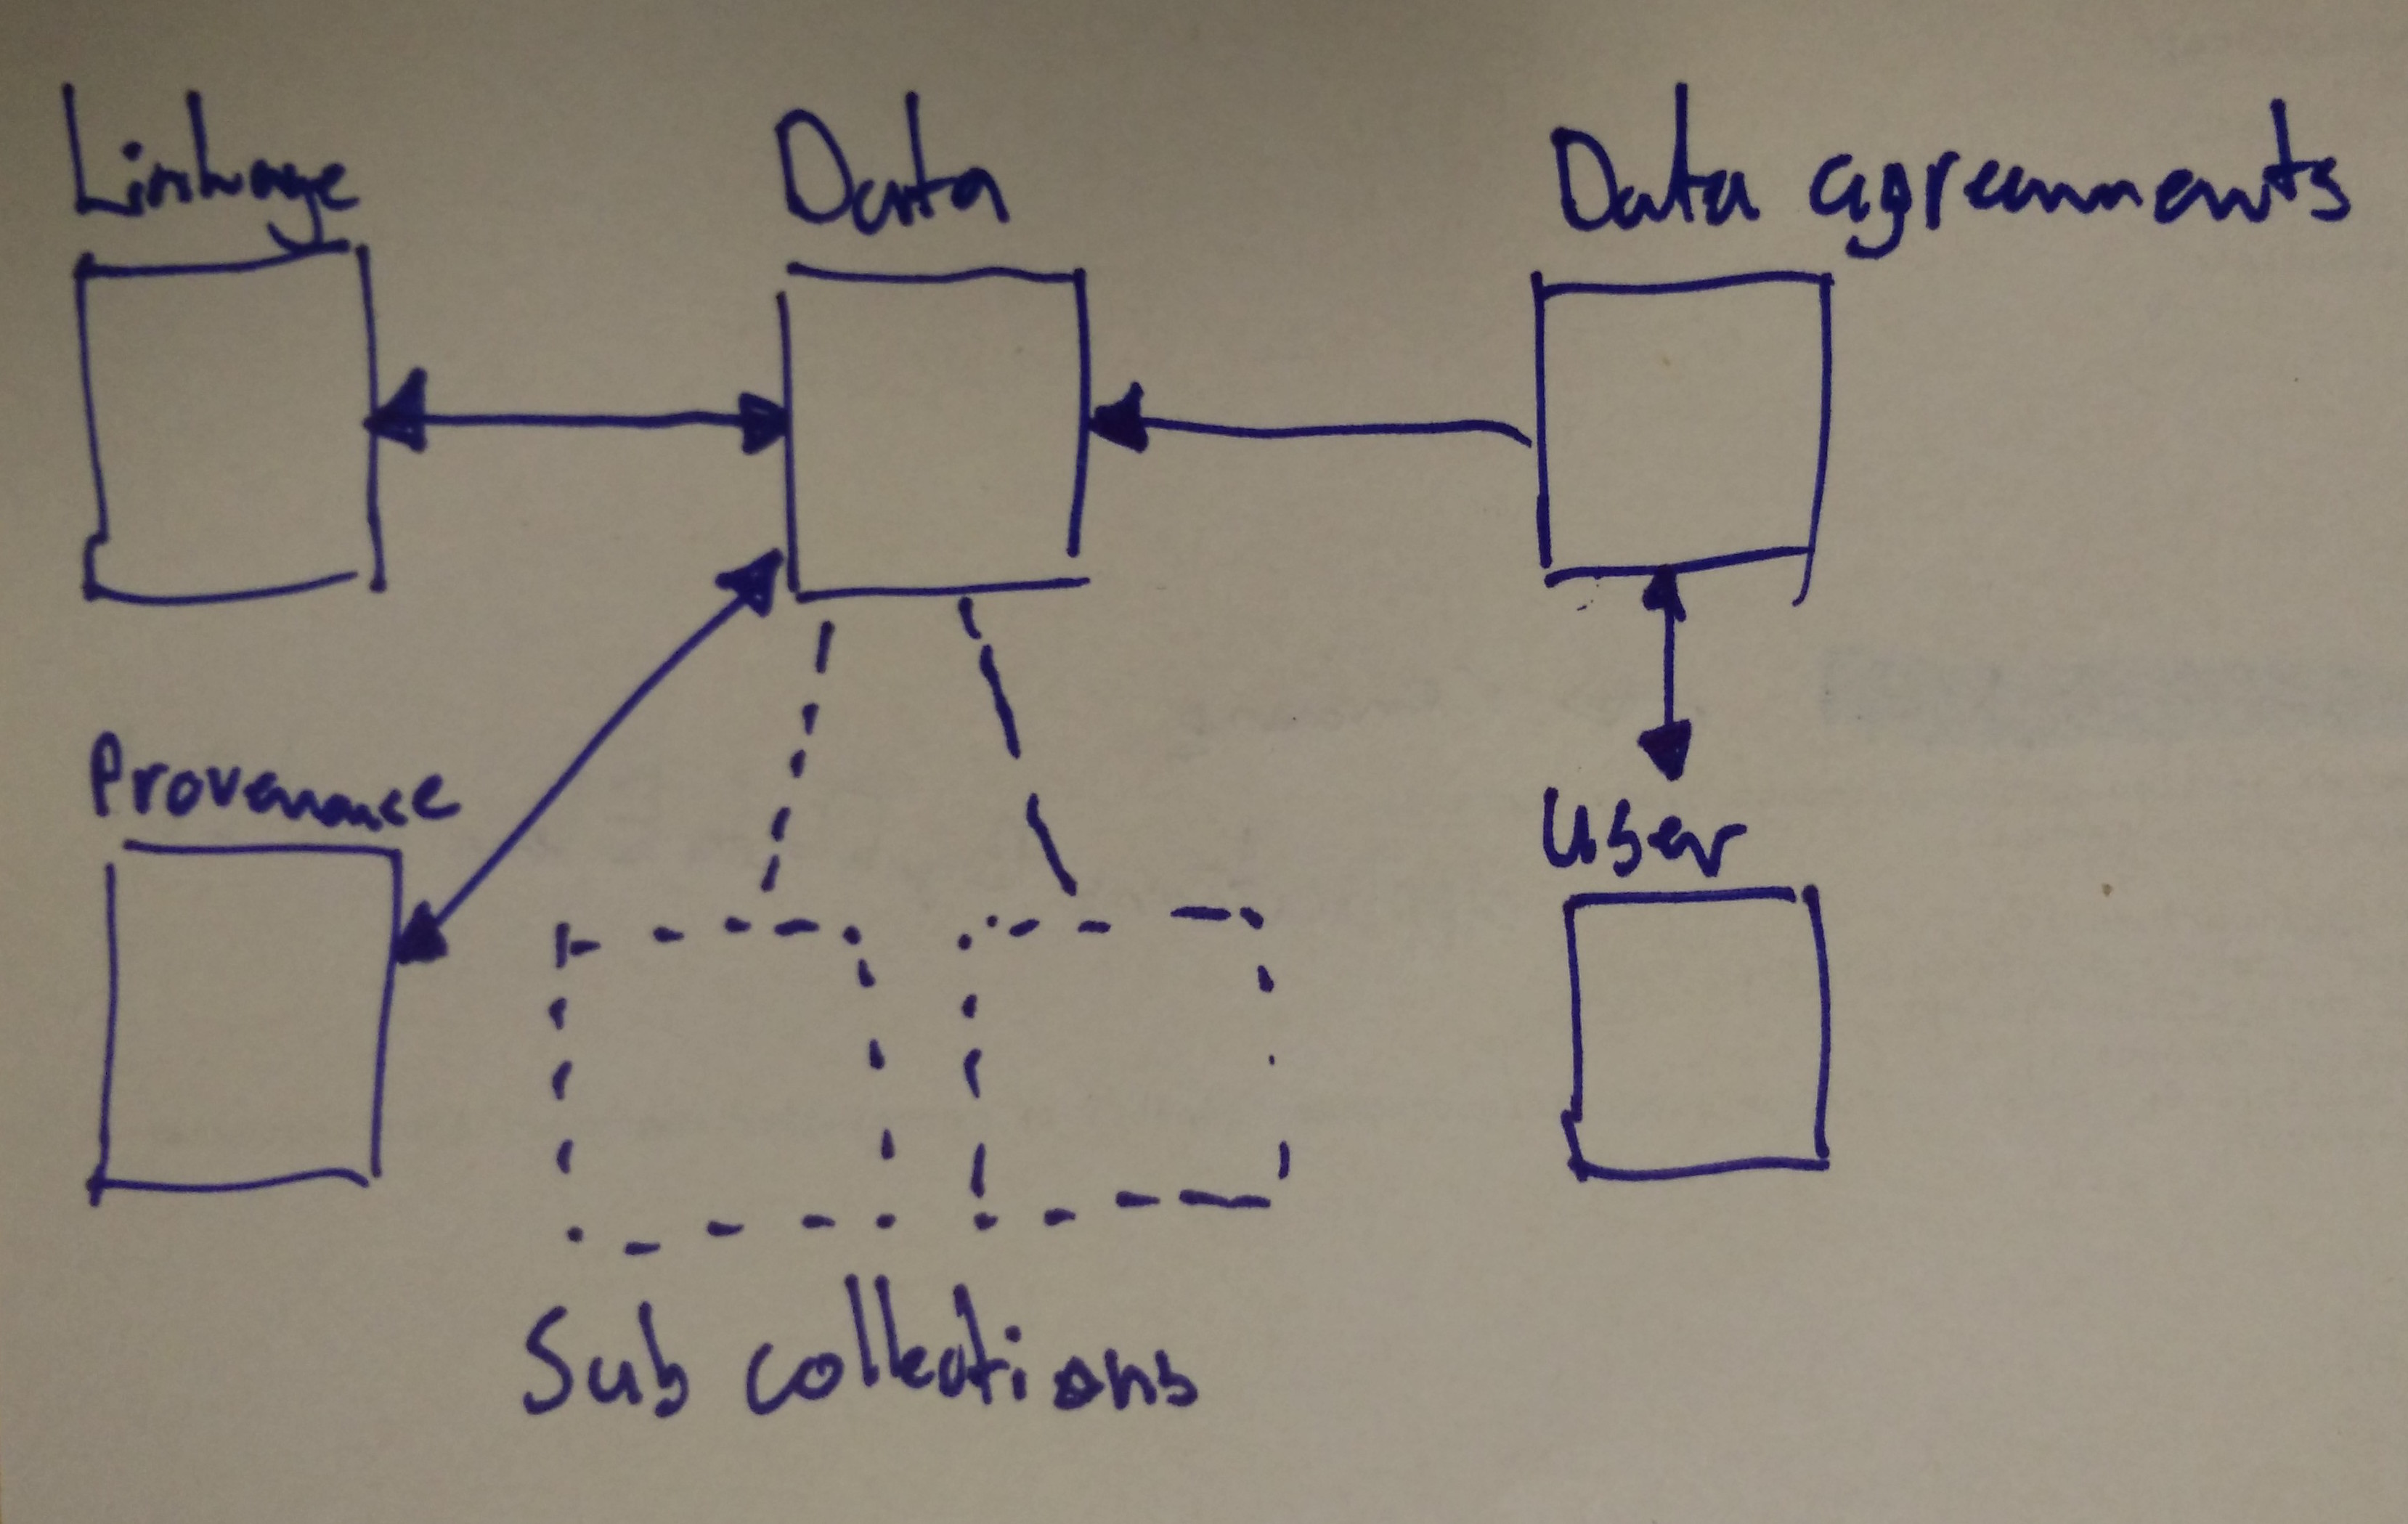 Linkage
Data
Data agreements
Provenance
User
Sub collections